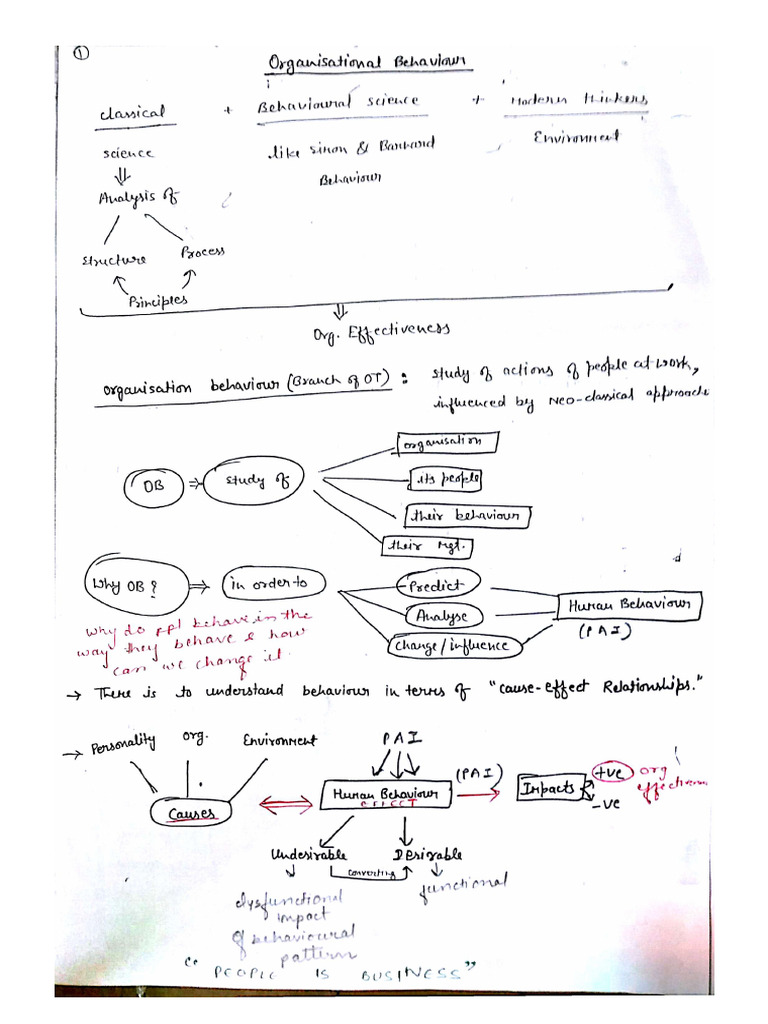 ①
Organisational Behaviour
classical + Behavioural science + Modern thinkers
science like Simon & Barnard , Environment
Behaviour
⇓
Analysis of
Structure Process
Principles
⇓
Org. Effectiveness
organisation behaviour (Branch of OT) : study of actions of people at work,
influenced by Neo-classical approach
OB ⇒ study of
organisation
its people
their behaviour
their Mgt.
Why OB? ⇒ in order to
Predict
Analyse
change/influence
Human Behaviour
(PAI)
why do ppl behave in the
way they behave & how
can we change it.
→ There is to understand behaviour in terms of "cause-effect Relationships."
→ Personality org. Environment
Causes
PAI
Human Behaviour
EFFECT
(PAI)
Impacts
+ve org
-ve
Undesirable Desirable
converting
dysfunctional functional
impact
of behavioural
pattern
"PEOPLE IS BUSINESS"